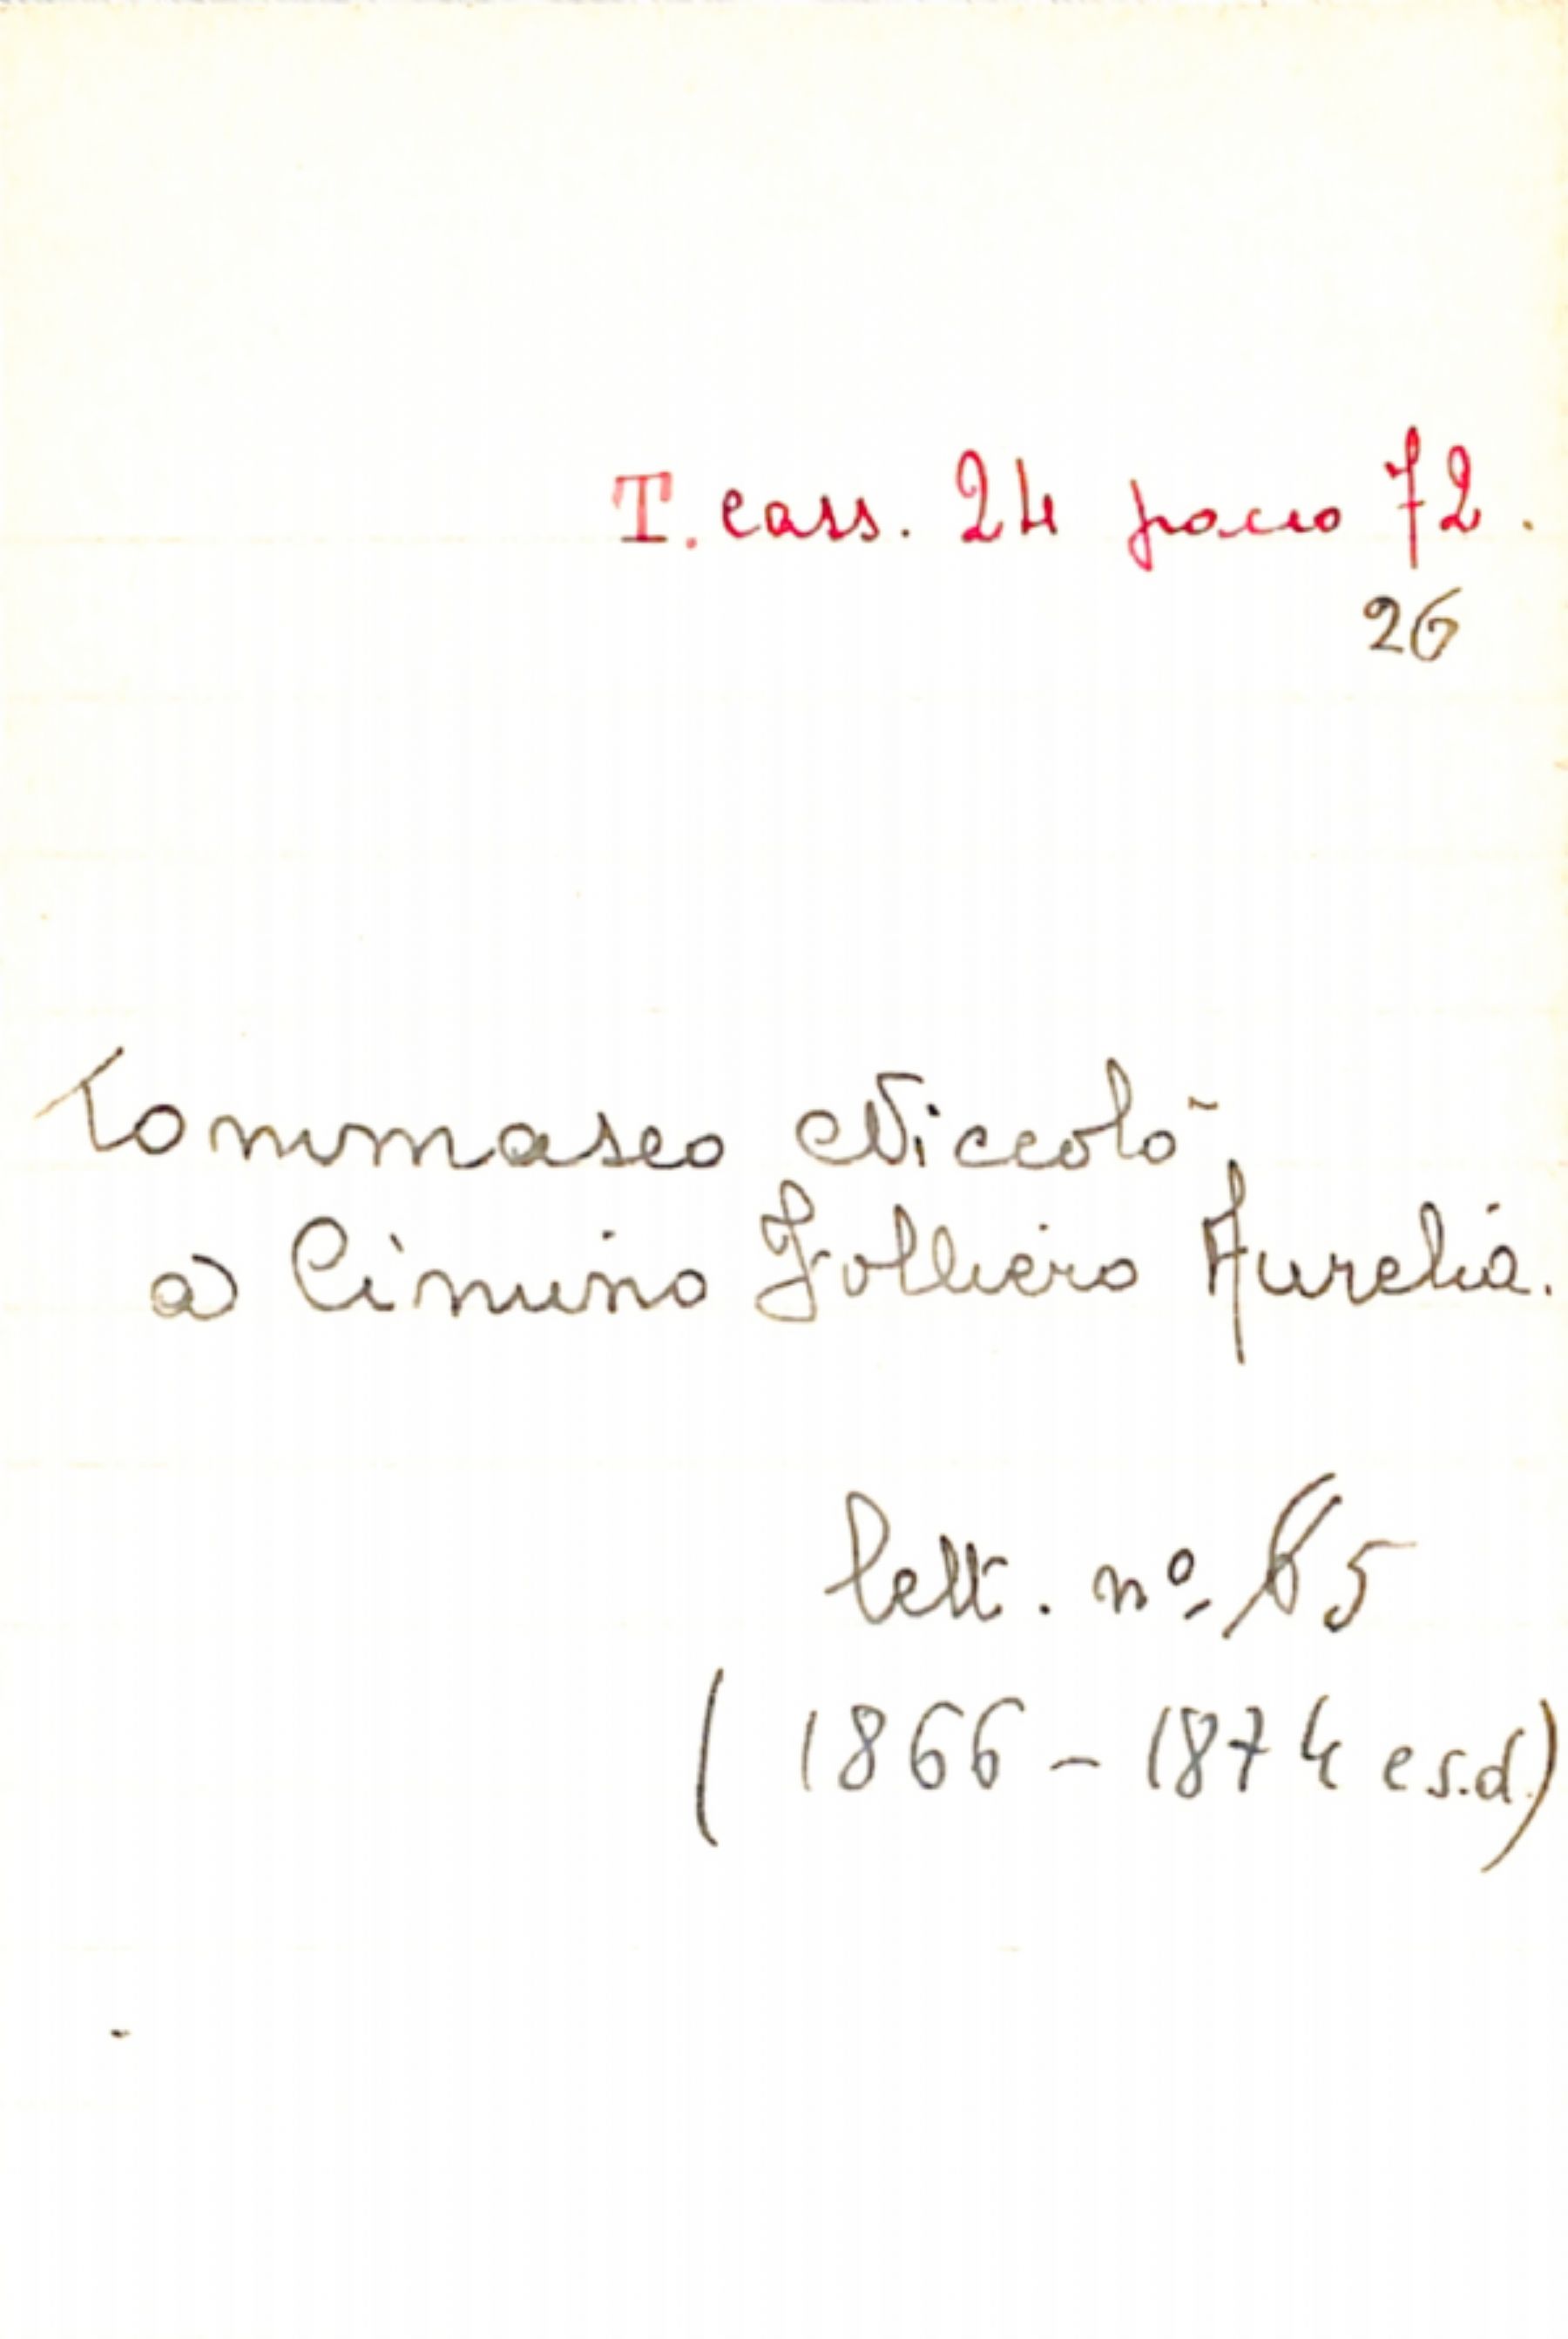 T. cass. 24 pacco 72.
26
Tommaseo Niccolò
a Cimino Folliero Aurelia.
lett. nº 65
(1866-1874 e s.d.)